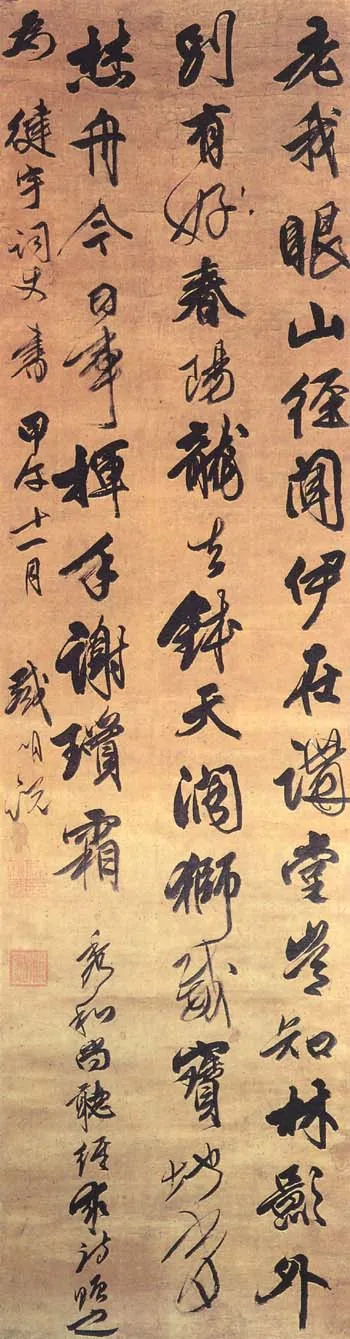 老我眠山徑聞伊在講堂豈知林影外
別有好春陽龍去鉢天闊獅威寶地香
舟今日事揮手謝瓊霜 秀和尚聽經求詩贈之
為健宇詞丈書 甲午十一月 戴明說